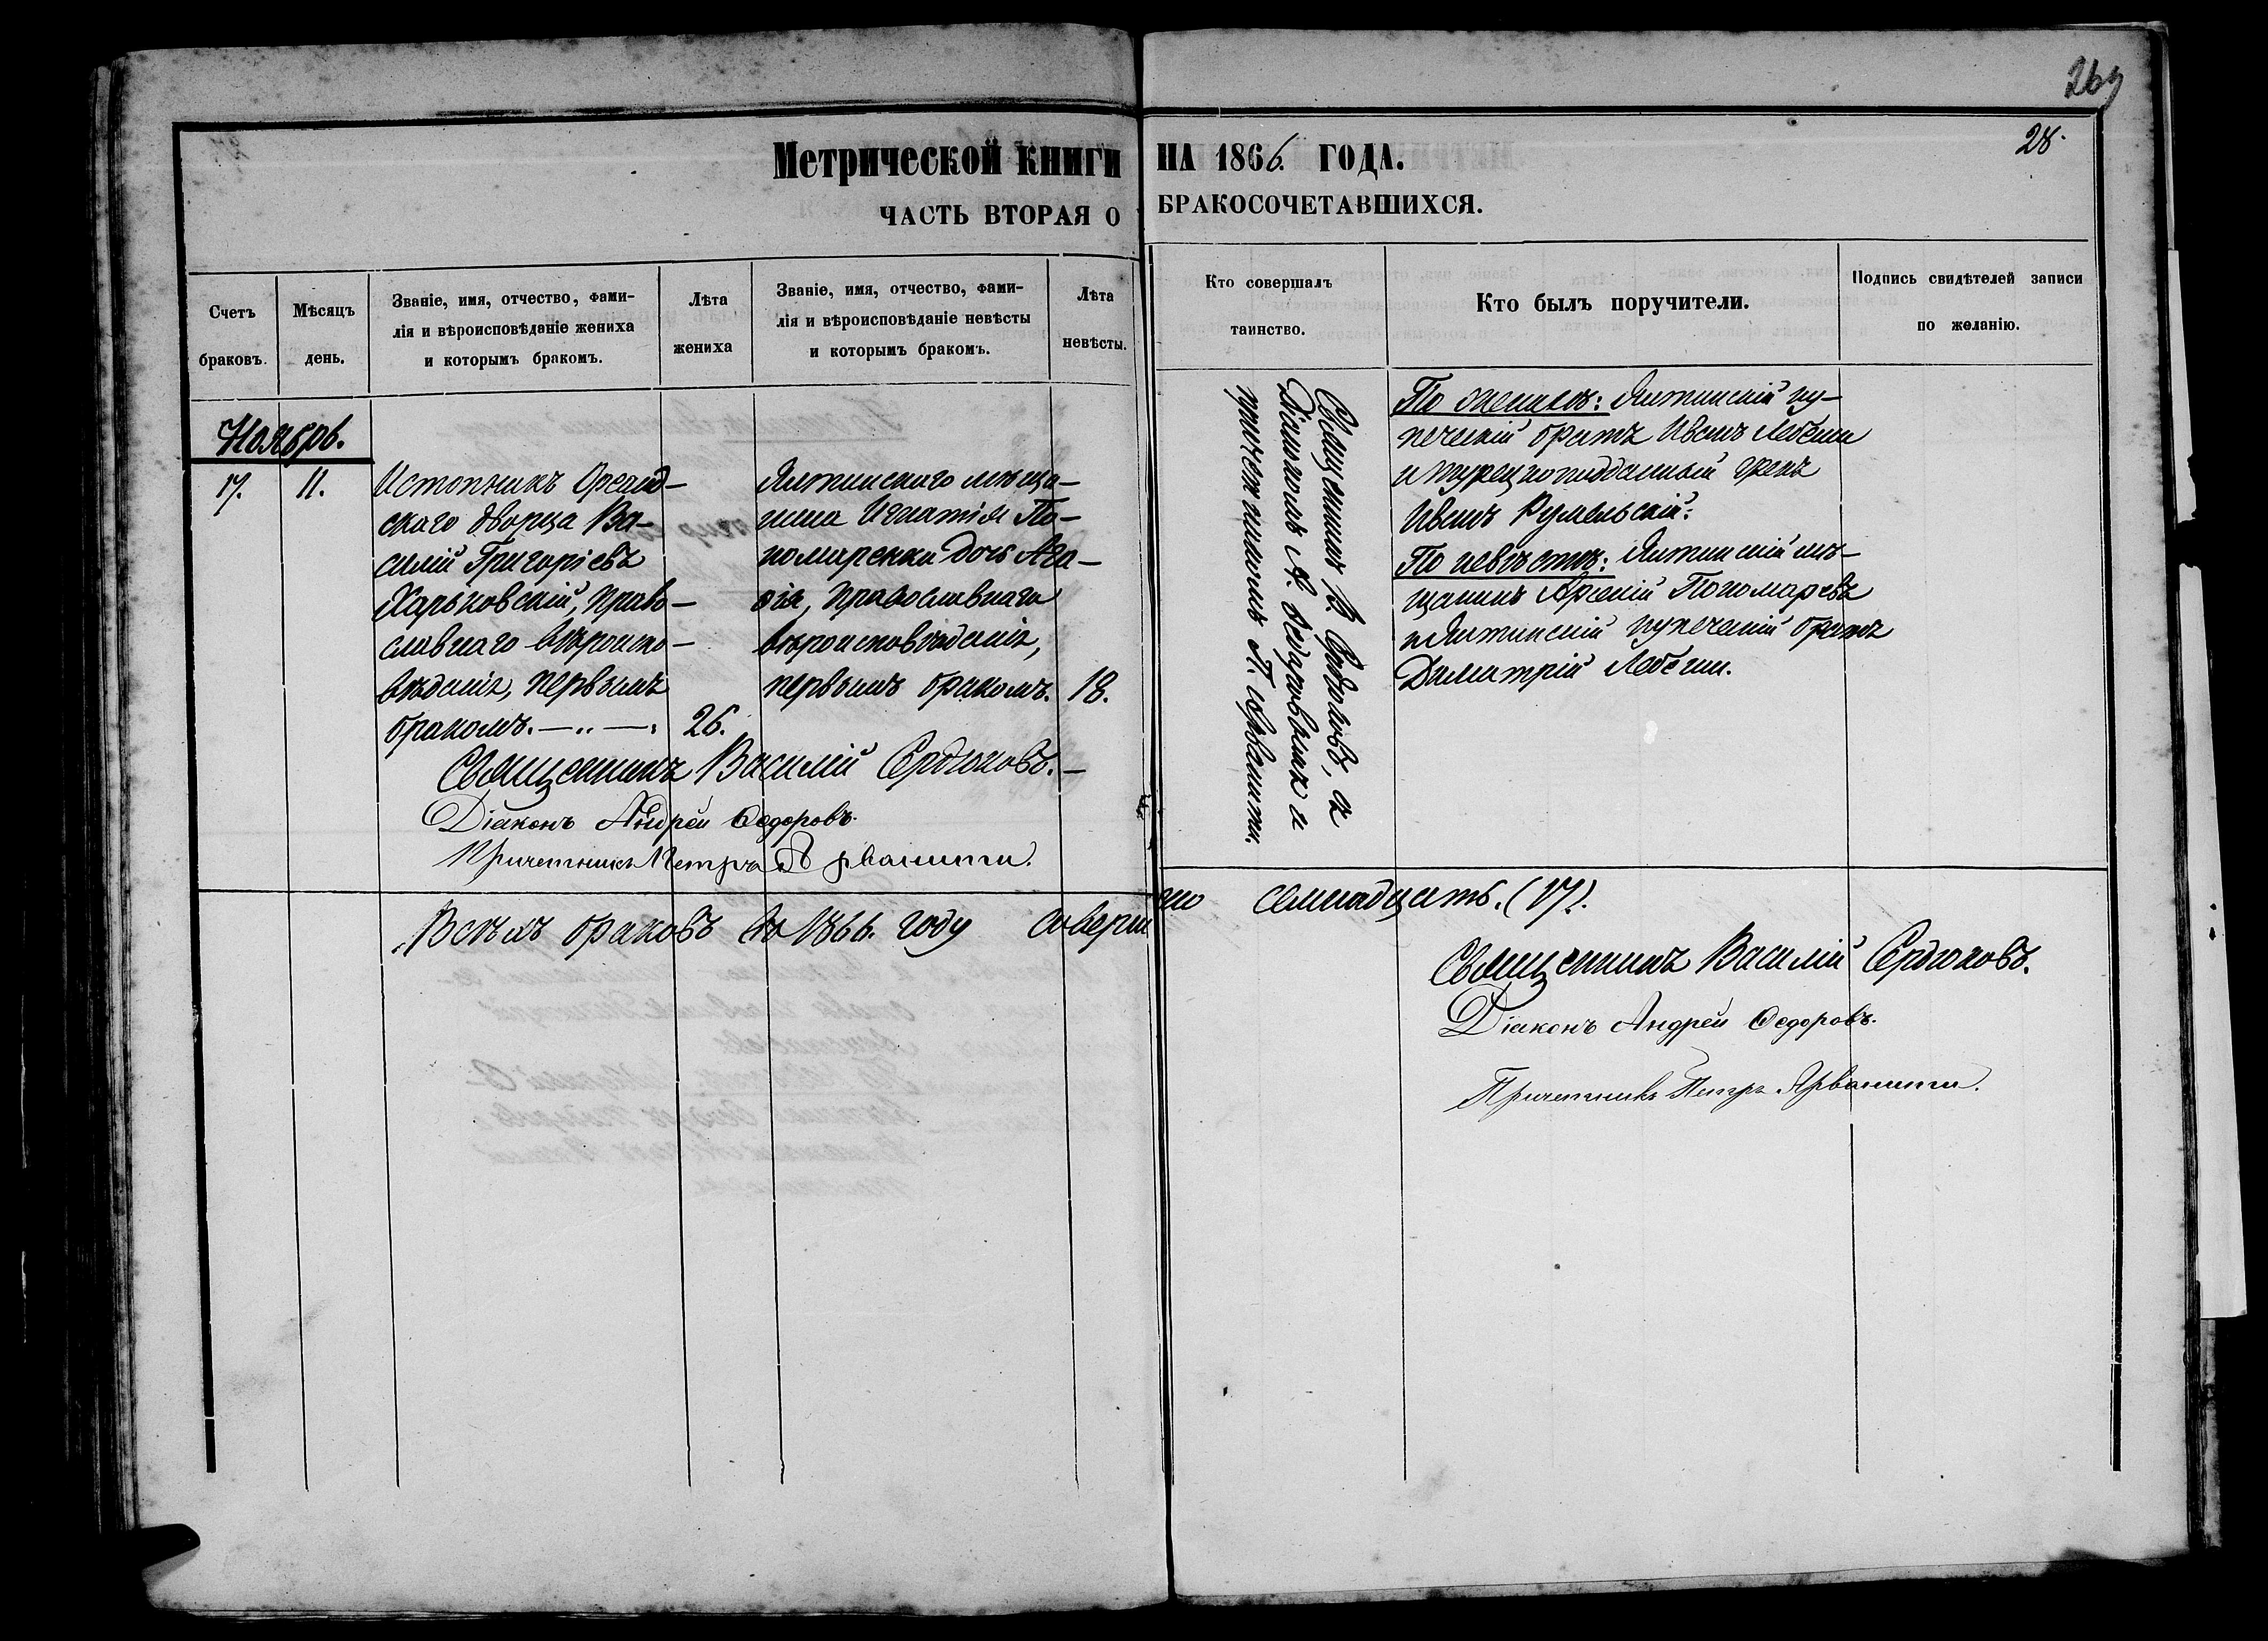 269
28.
Метрической книги НА 1866. ГОДА.
ЧАСТЬ ВТОРАЯ О БРАКОСОЧЕТАВШИХСЯ.
Счетъ
браковъ.
Мѣсяцъ
день.
Званіе, имя, отчество, фами-
лія и вѣроисповѣданіе жениха
и которымъ бракомъ.
Лѣта
жениха
Званіе, имя, отчество, фами-
лія и вѣроисповѣданіе невѣсты
и которымъ бракомъ.
Лѣта
невѣсты.
Кто совершалъ
таинство.
Кто былъ поручители.
Подпись свидѣтелей записи
по желанію.
Ноябрь.
17.
11.
Истопникъ Ореанд-
скаго дворца Ва-
силій Григоріевъ
Харьковскій, право-
славнаго вѣроиспо-
вѣданія, первымъ
бракомъ.
26.
Ялтинскаго мѣща-
нина Игнатія По-
номаренки дочь Ага-
ѳія, православнаго
вѣроисповѣданія,
первымъ бракомъ.
18.
Священникъ В. Сердюковъ, съ
Діакономъ А. Ѳедоровымъ и
причетникомъ П. Арванити.
По женихѣ: Ялтинскій ку-
печескій братъ Иванъ
и турецкоподданный грекъ
Иванъ Румельскій.
По невѣстѣ: Ялтинскій мѣ-
щанинъ Арсеній Пономаревъ
и Ялтинскій купеческій братъ
Димитрій
Священникъ Василій Сердюковъ.
Діаконъ Андрей Ѳедоровъ.
Причетникъ Петръ Арванити.
Всѣхъ браковъ въ 1866. году совершено семнадцать. (17).
Священникъ Василій Сердюковъ.
Діаконъ Андрей Ѳедоровъ.
Причетникъ Петръ Арванити.